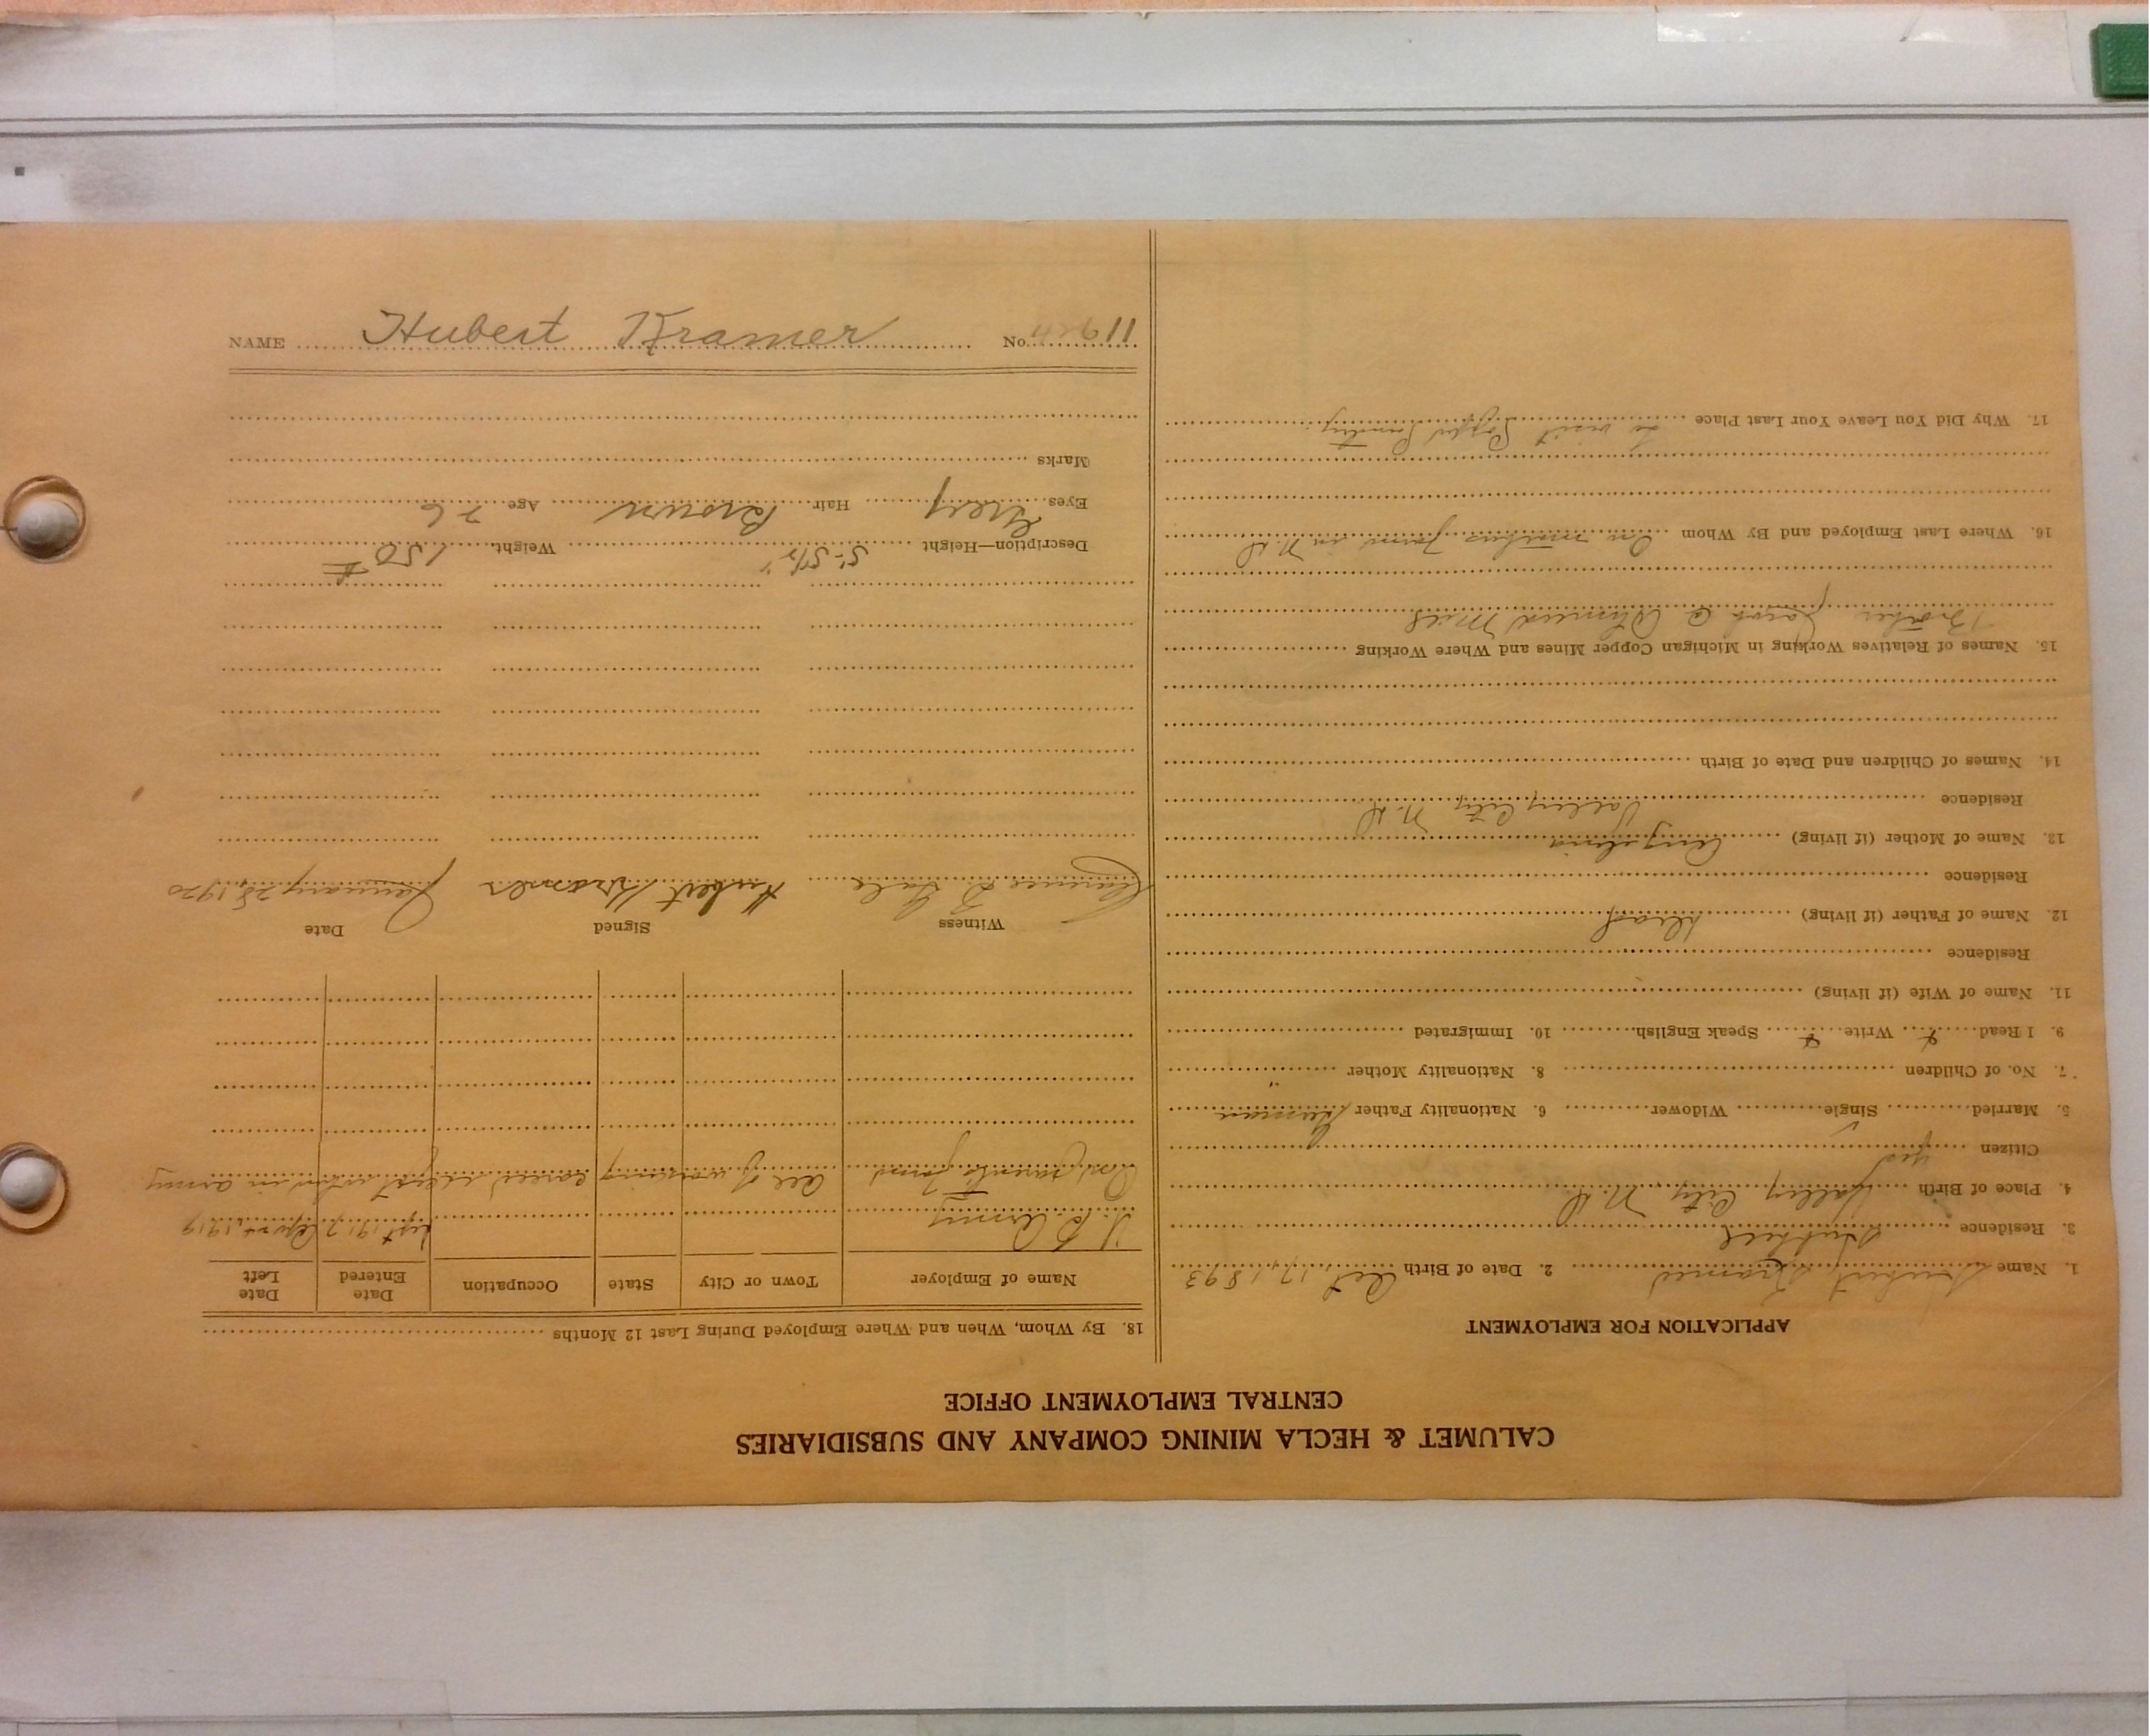 CALUMET & HECLA MINING COMPANY AND SUBSIDIARIES
CENTRAL EMPLOYMENT OFFICE
APPLICATION FOR EMPLOYMENT
1. Name Hubert Kramer 2. Date of Birth Oct. 17, 1893
3. Residence Hubbell
4. Place of Birth Valley City N. D.
Citizen yes
5. Married Single Widower 6. Nationality Father German
7. No. of Children 8. Nationality Mother "
9. I Read Write Speak English 10. Immigrated
11. Name of Wife (if living)
Residence
12. Name of Father (if living) dead
Residence
13. Name of Mother (if living) Angelina
Residence Valley City N. D
14. Names of Children and Date of Birth
15. Names of Relatives Working in Michigan Copper Mines and Where Working
Brother Jacob @ Ahmeek Mill
16. Where Last Employed and By Whom On mothers farm in N. D
17. Why Did You Leave Your Last Place To visit Copper Country.
18. By Whom, When and Where Employed During Last 12 Months
Name of Employer Town or City State Occupation Date Entered Date Left
U. S. Army Sept 1917 1919
On parents farm all of working career except when in army
Witness Signed Date
Clarence D. Gale Hubert Kramer January 28, 1920
Description—Height 5'-5½" Weight 150 #
Eyes Grey Hair Brown Age 26
Marks
NAME Hubert Kramer No. 11